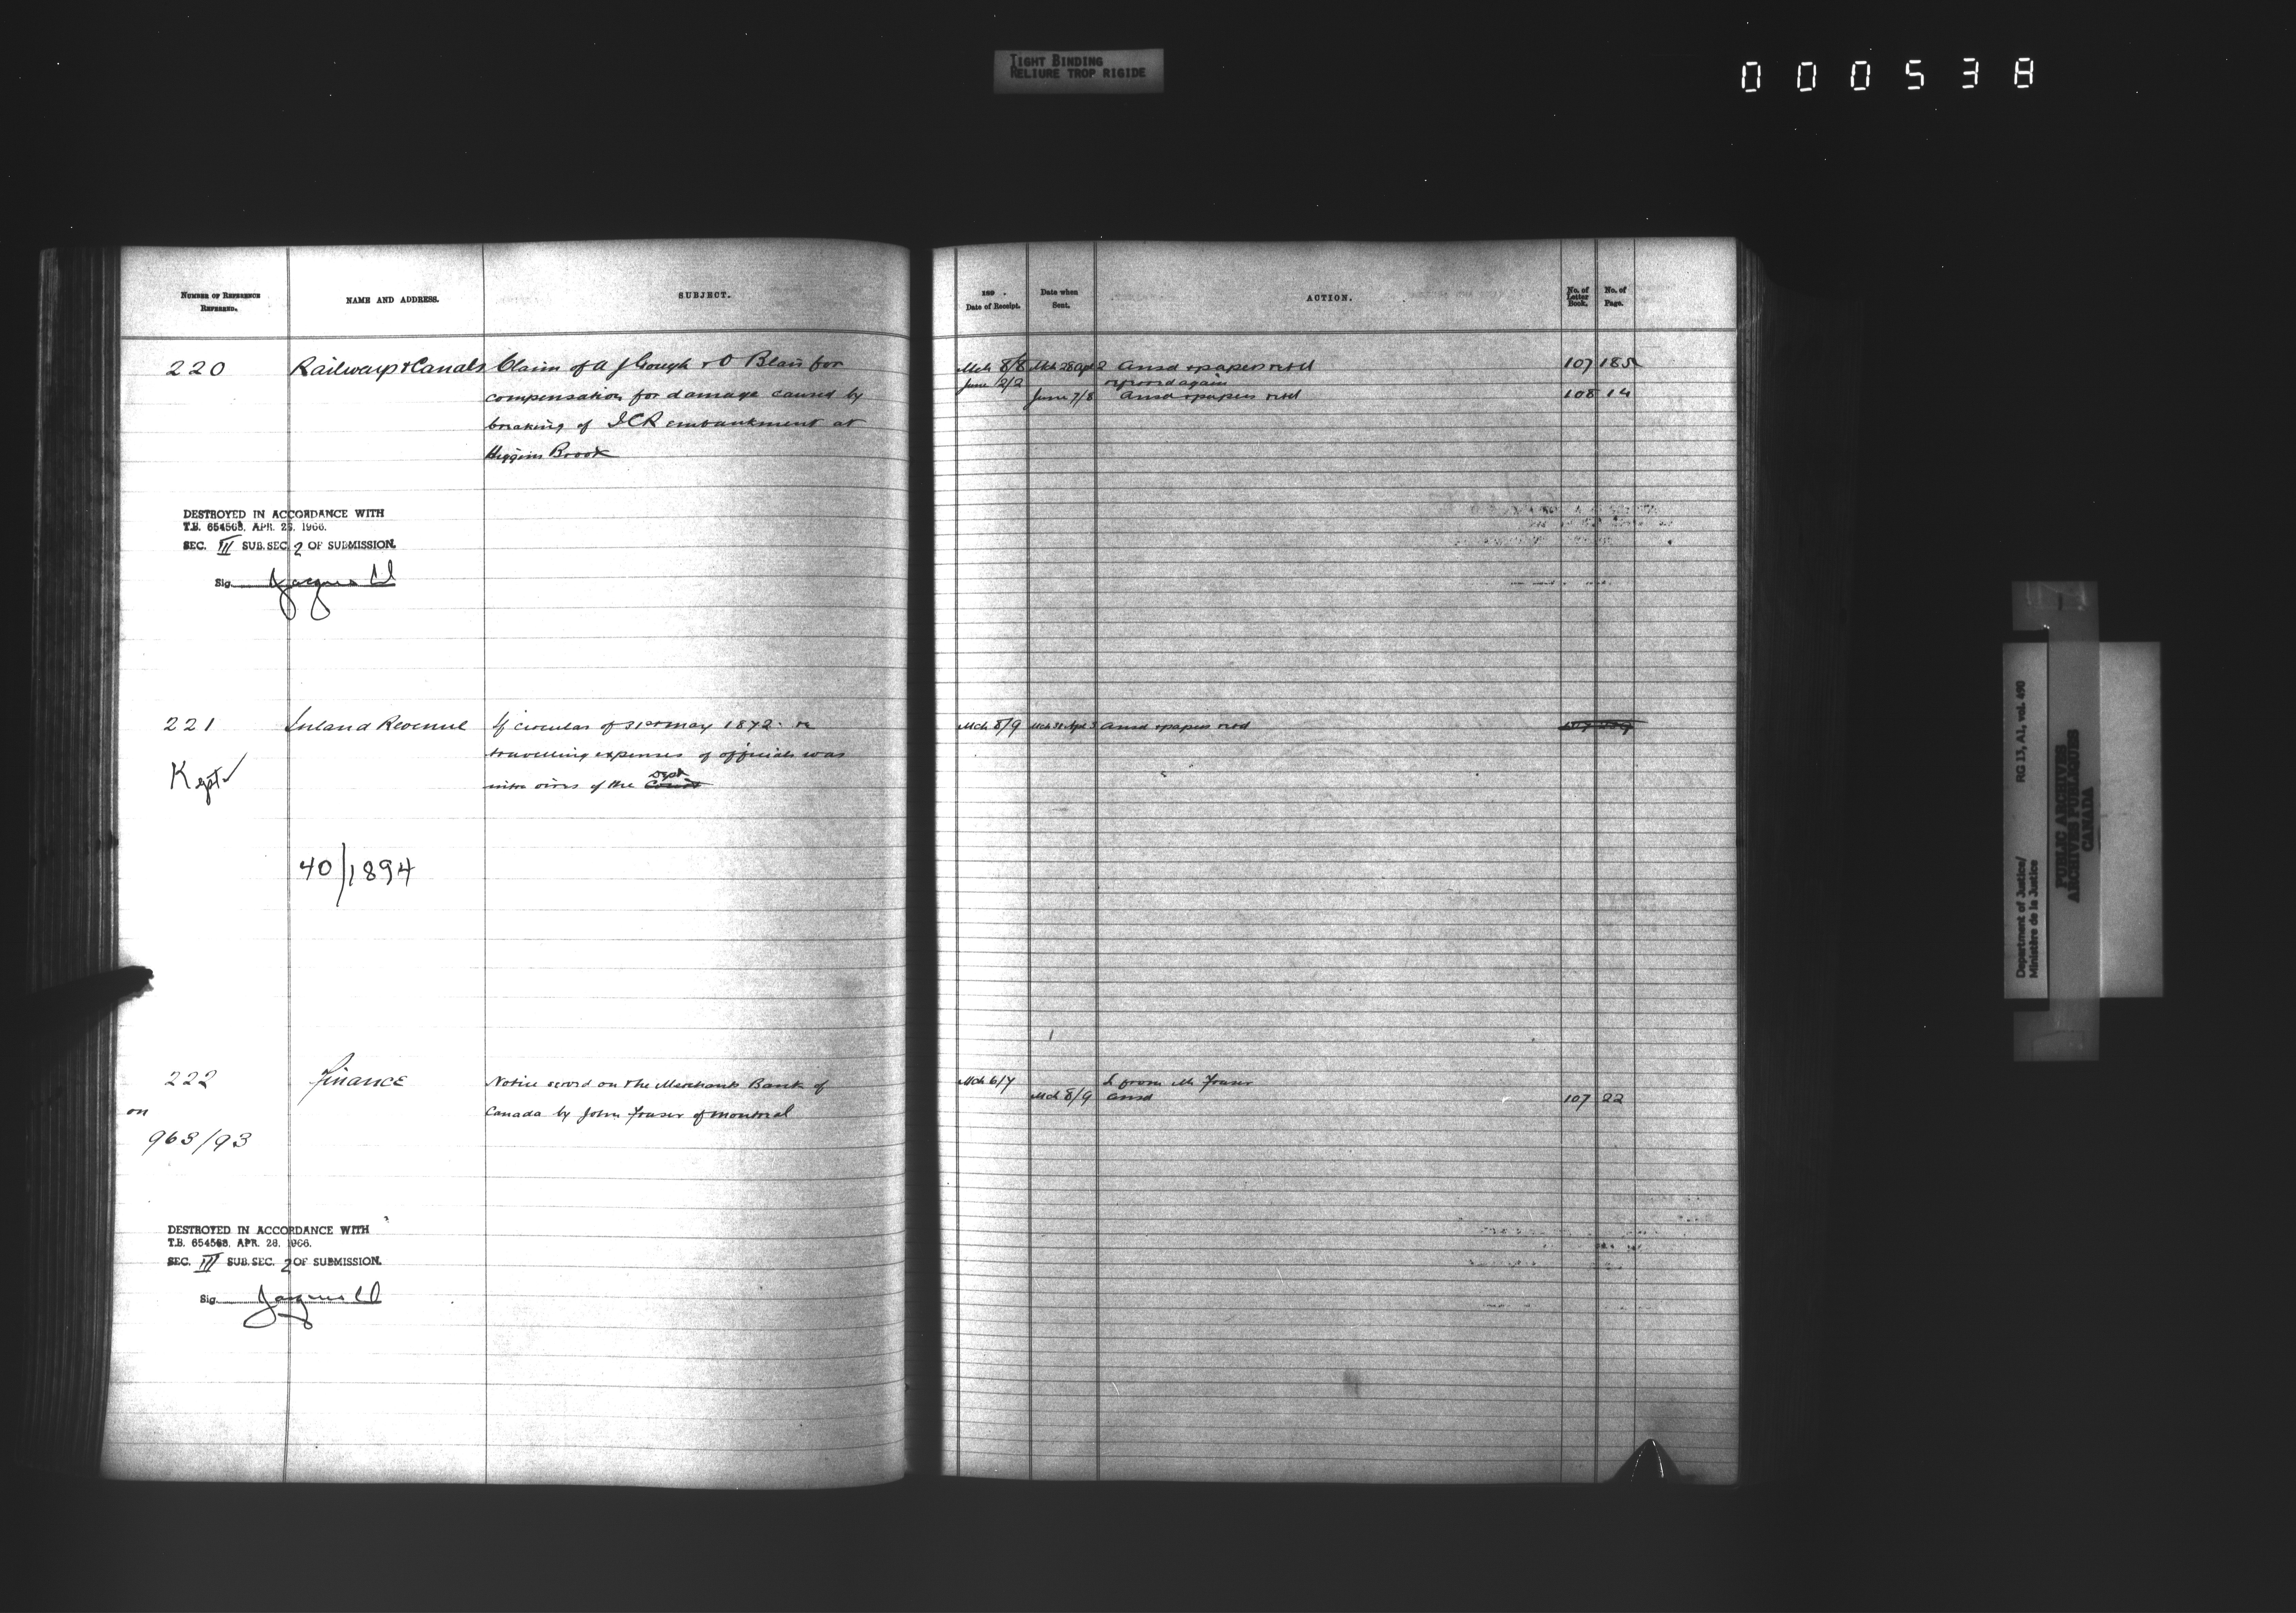 TIGHT BINDING
RELIURE TROP RIGIDE
000538
NUMBER OF REFERENCE
REFERRED.
NAME AND ADDRESS.
SUBJECT.
189 .
Date of Receipt.
Date when
Sent.
ACTION.
No. of
Letter
Book.
No. of
Page.
220 Railways & Canals Claim of A J Gough & O Blair for
compensation for damage caused by
breaking of ICR embankment at
Higgins Brook
Mch 8/8 Mch 28 Apl 2 Ansd & papers retd 107 185
June 2/2 again
June 7/8 Ansd & papers retd 108 14
DESTROYED IN ACCORDANCE WITH
T.B. 654563, APR. 28, 1966.
SEC. III SUB.SEC. 2 OF SUBMISSION.
Sig.
221 Inland Revenue If circular of 31st May 1872 re
travelling expenses of officials was
intra vires of the Dept Court
Mch 8/9 Mch 31 Apl 3 Ansd & papers retd
Kept
40/1894
222 Finance Notice served on the Merchants Bank of
Canada by John Fraser of Montreal
Mch 6/7 L from Mr Fraser
Mch 8/9 Ansd 107 22
on
963/93
DESTROYED IN ACCORDANCE WITH
T.B. 654563, APR. 28, 1966.
SEC. III SUB.SEC. 2 OF SUBMISSION.
Sig.
Department of Justice/
Ministère de la Justice
RG 13, A1, vol. 490
PUBLIC ARCHIVES
ARCHIVES PUBLIQUES
CANADA